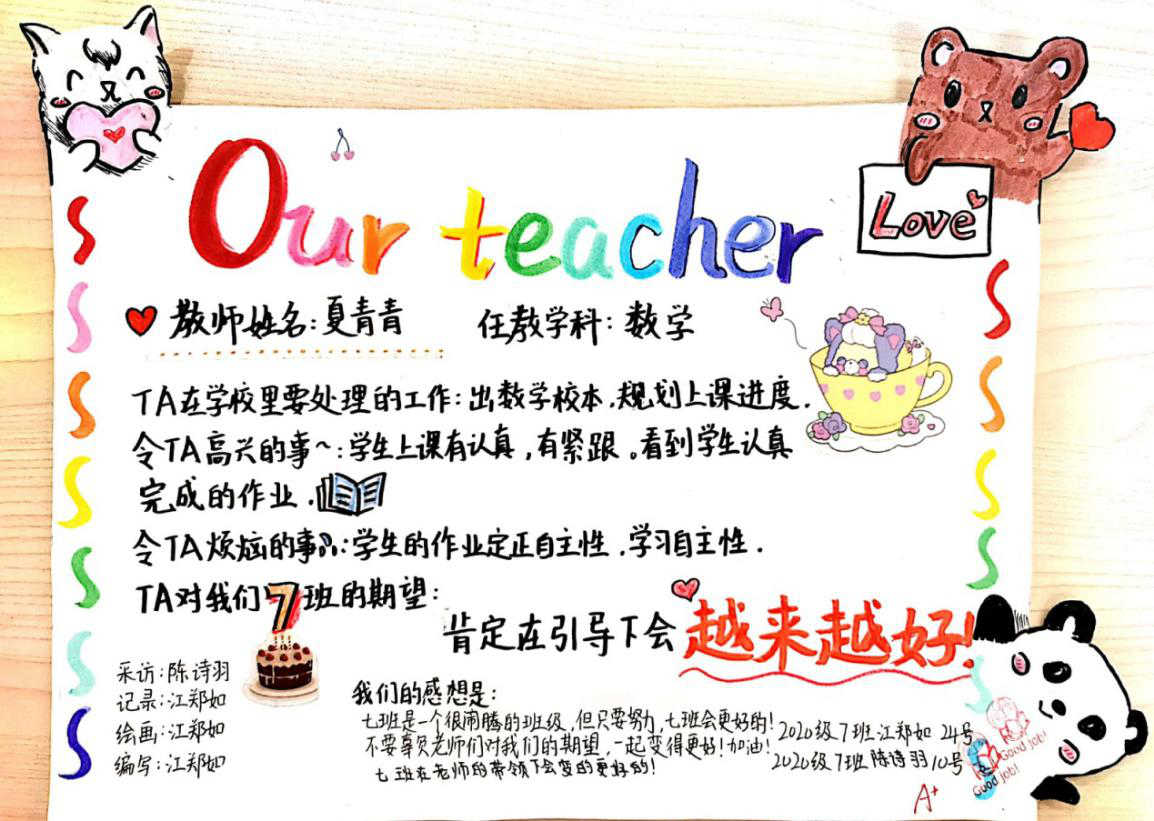 Our teacher
Love
教师姓名:夏青青 任教学科:数学
TA在学校里要处理的工作:出数学校本,规划上课进度.
令TA高兴的事~:学生上课有认真,有紧跟。看到学生认真
完成的作业.
令TA烦恼的事:学生的作业定正自主性.学习自主性.
TA对我们7班的期望:
肯定在引导下会越来越好!
采访:陈诗羽
记录:江郑如
绘画:江郑如
编写:江郑如
我们的感想是:
七班是一个很闹腾的班级,但只要努力,七班会更好的!
不要辜负老师们对我们的期望,一起变得更好!加油!
七班在老师的带领下会变的更好的!
2020级7班江郑如 24号
2020级7班陈诗羽10号
Good job!
Good job!
A+